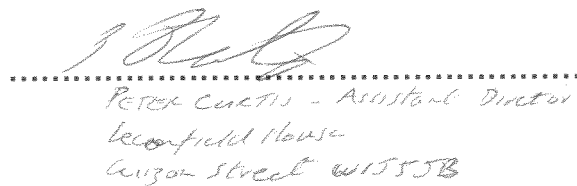 PETER CURTIS - Assistant Director
Leconfield House
Curzon Street W1J 5JB